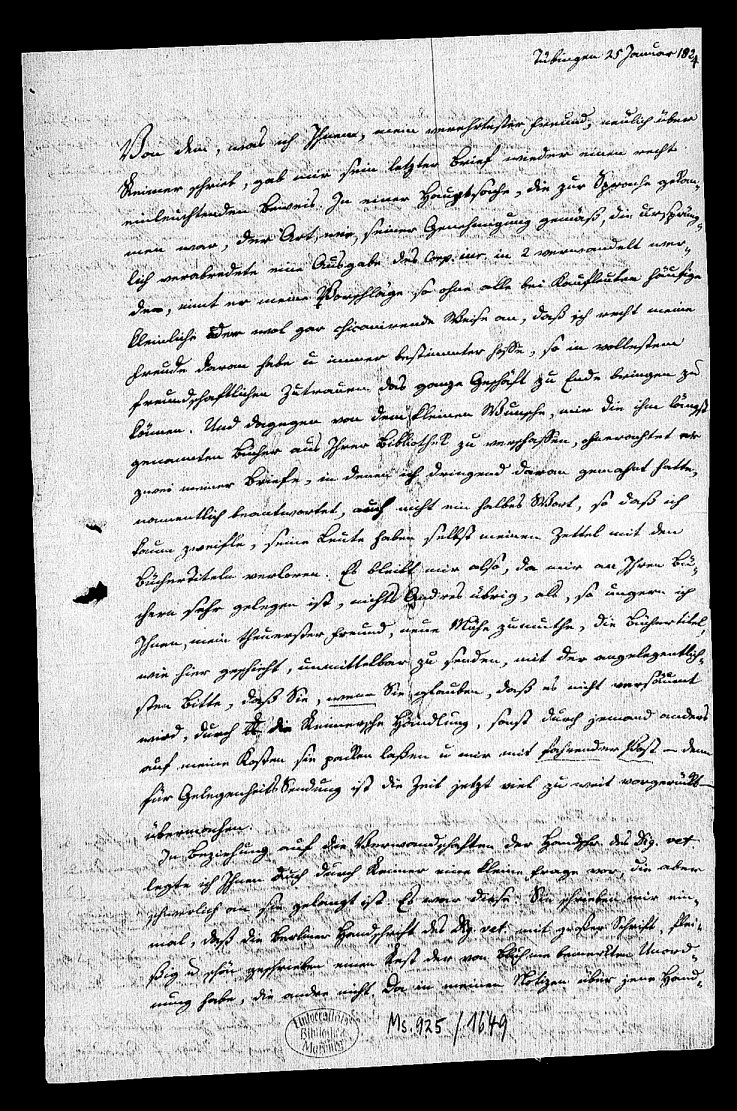 Tübingen 25 Januar 1824
Von dem, was ich Ihnen, mein verehrtester Freund, neulich über
Reimer schrieb, gab mir sein letzter Brief wieder einen recht
einleuchtenden Beweis. In einer Hauptsache, die zur Sprache gekom-
men war, der Art, seiner Genehmigung gemäß, die ursprüng-
lich verabredete eine Ausgabe des Corp. iur. in 2 verwandelt wer-
den, nimt er meine Vorschläge so ohne alle bei Kaufleuten häufige
kleinliche oder wol gar chicanirende Weise an, daß ich recht meine
Freude daran habe u immer bestimmter hoffe, so in vollestem
freundschaftlichen Zutrauen das ganze Geschäft zu Ende bringen zu
können. Und dagegen von dem kleinen Wunsche, mir die ihm längst
genannten Bücher aus Ihrer Bibliothek zu verschaffen, ohnerachtet er
zwei meiner Briefe, in denen ich dringend daran gemahnt hatte,
namentlich beantwortet, auch nicht ein halbes Wort, so daß ich
kaum zweifle, seine Leute haben selbst meinen Zettel mit den
Büchertiteln verloren. Es bleibt mir also, da mir an Ihren Bü-
chern sehr gelegen ist, nichts Andres übrig, als, so ungern ich
Ihnen, mein theuerster Freund, neue Mühe zumuthe, die Büchertitel,
wie hier geschieht, unmittelbar zu senden, mit der angelegentlich-
sten Bitte, daß Sie, wenn Sie glauben, daß es nicht versäumt
wird, durch die Reimersche Handlung, sonst durch jemand anders
auf meine Kosten sie packen laßen u mir mit fahrender Post – denn
für Gelegenheits Sendung ist die Zeit jetzt viel zu weit vorgerückt –
übermachen.
In Beziehung auf die Verwandschaften der Handschr. des Dig. vet.
legte ich Ihnen auch durch Reimer eine kleine Frage vor, die aber
schwerlich an Sie gelangt ist. Es war diese. Sie schrieben mir ein-
mal, daß die Berliner Handschrift des Dig. vet. mit großer Schrift, flei-
ßig u schön geschrieben einen Rest der von Bluhme bemerkten Unord-
nung habe, die andre nicht. Da in meinen Notizen über jene Hand-
Universitäts
Bibliothek
Marburg
Ms. 925 / 1649